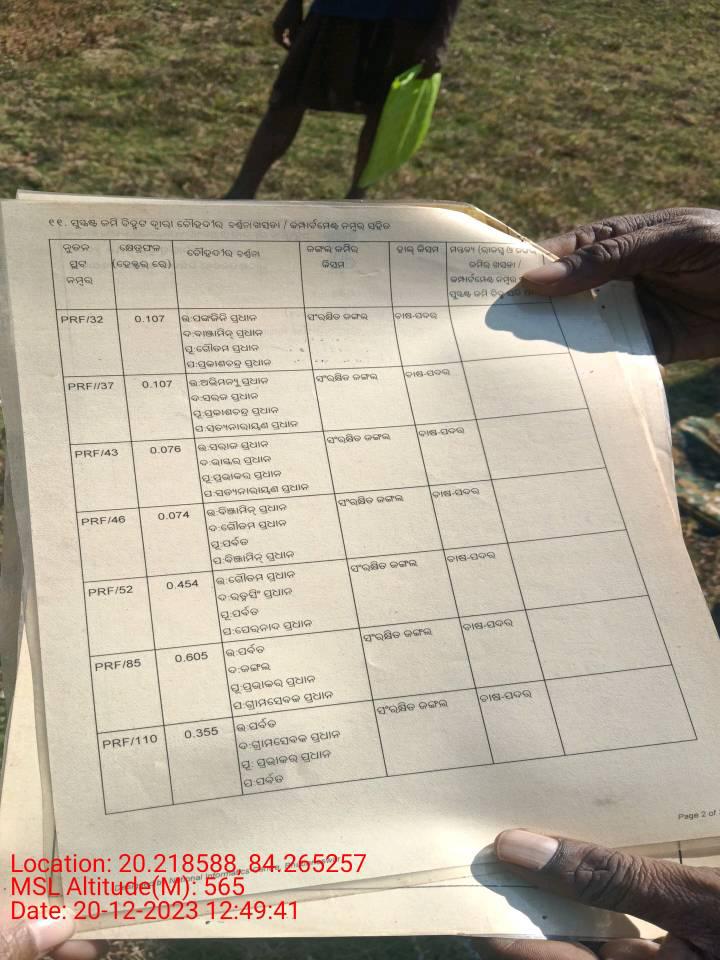 ୧୧. ସୁସ୍ପଷ୍ଟ ଜମି ଚିହ୍ନଟ ଦ୍ୱାରା ଚୌହଦୀର ବର୍ଣ୍ଣନା/ଖସଡା / କମ୍ପାର୍ଟମେଣ୍ଟ ନମ୍ବର ସହିତ
ନୁତନ ପ୍ଲଟ ନମ୍ବର
କ୍ଷେତ୍ରଫଳ (ହେକ୍ଟର ରେ)
ଚୌହଦୀର ବର୍ଣ୍ଣନା
ଜଙ୍ଗଲ ଜମିର କିସମ
ହାଲ୍ କିସମ
ମନ୍ତବ୍ୟ (ରାଜସ୍ୱ ଓ ଜଙ୍ଗଲ
ଜମିର ଖସଡା /
କମ୍ପାର୍ଟମେଣ୍ଟ ନମ୍ବର
ସୁସ୍ପଷ୍ଟ ଜମି ଚିହ୍ନ
PRF/32 0.107 ଉ:ପଙ୍କଜିନି ପ୍ରଧାନ ସଂରକ୍ଷିତ ଜଙ୍ଗଲ ଚାଷ-ପଦର
ଦ:ବାଞ୍ଜାମିନ୍ ପ୍ରଧାନ
ପୂ:ଗୌତମ ପ୍ରଧାନ
ପ:ପ୍ରକାଶଚନ୍ଦ୍ର ପ୍ରଧାନ
PRF//37 0.107 ଉ:ଅଭିମନ୍ୟୁ ପ୍ରଧାନ ସଂରକ୍ଷିତ ଜଙ୍ଗଲ ଚାଷ-ପଦର
ଦ:ସରୋଜ ପ୍ରଧାନ
ପୂ:ପ୍ରକାଶଚନ୍ଦ୍ର ପ୍ରଧାନ
ପ:ସତ୍ୟନାରାୟଣ ପ୍ରଧାନ
PRF/43 0.076 ଉ:ସରୋଜ ପ୍ରଧାନ ସଂରକ୍ଷିତ ଜଙ୍ଗଲ ଚାଷ-ପଦର
ଦ:ଭାସ୍କର ପ୍ରଧାନ
ପୂ:ପ୍ରଭାକର ପ୍ରଧାନ
ପ:ସତ୍ୟନାରାୟଣ ପ୍ରଧାନ
PRF/46 0.074 ଉ:ବିଞ୍ଜାମିନ୍ ପ୍ରଧାନ ସଂରକ୍ଷିତ ଜଙ୍ଗଲ ଚାଷ-ପଦର
ଦ:ଗୌତମ ପ୍ରଧାନ
ପୂ:ପର୍ବତ
ପ:ବିଞ୍ଜାମିନ୍ ପ୍ରଧାନ
PRF/52 0.454 ଉ:ଗୌତମ ପ୍ରଧାନ ସଂରକ୍ଷିତ ଜଙ୍ଗଲ ଚାଷ-ପଦର
ଦ:ଉଦ୍ଧବସିଂ ପ୍ରଧାନ
ପୂ:ପର୍ବତ
ପ:ପେରନାଦ ପ୍ରଧାନ
PRF/85 0.605 ଉ:ପର୍ବତ ସଂରକ୍ଷିତ ଜଙ୍ଗଲ ଚାଷ-ପଦର
ଦ:ଜଙ୍ଗଲ
ପୂ:ପ୍ରଭାକର ପ୍ରଧାନ
ପ:ଗ୍ରାମସେବକ ପ୍ରଧାନ
PRF/110 0.355 ଉ:ପର୍ବତ ସଂରକ୍ଷିତ ଜଙ୍ଗଲ ଚାଷ-ପଦର
ଦ:ଗ୍ରାମସେବକ ପ୍ରଧାନ
ପୂ: ପ୍ରଭାକର ପ୍ରଧାନ
ପ:ପର୍ବତ
Page 2 of
National Informatics
Location: 20.218588, 84.265257
MSL Altitude(M): 565
Date: 20-12-2023 12:49:41